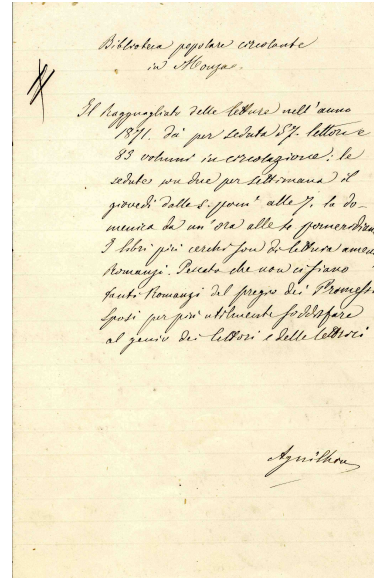 Biblioteca popolare circolante
in Monza.
Il Ragguagliato delle letture nell'anno
1871. dà per seduta 57. lettori e
83 volumi in circolazione: le
sedute son due per settimana il
giovedì dalle 5. pom.i alle 7. la do-
menica da un'ora alle te pomeridiane
I libri più cerchi son di lettura amen
Romanzi. Peccato che non ci siano
tanti Romanzi del pregio dei Promessi
Sposi per più utilmente soddisfare
al genio dei lettori e delle lettrici
Agnilhon